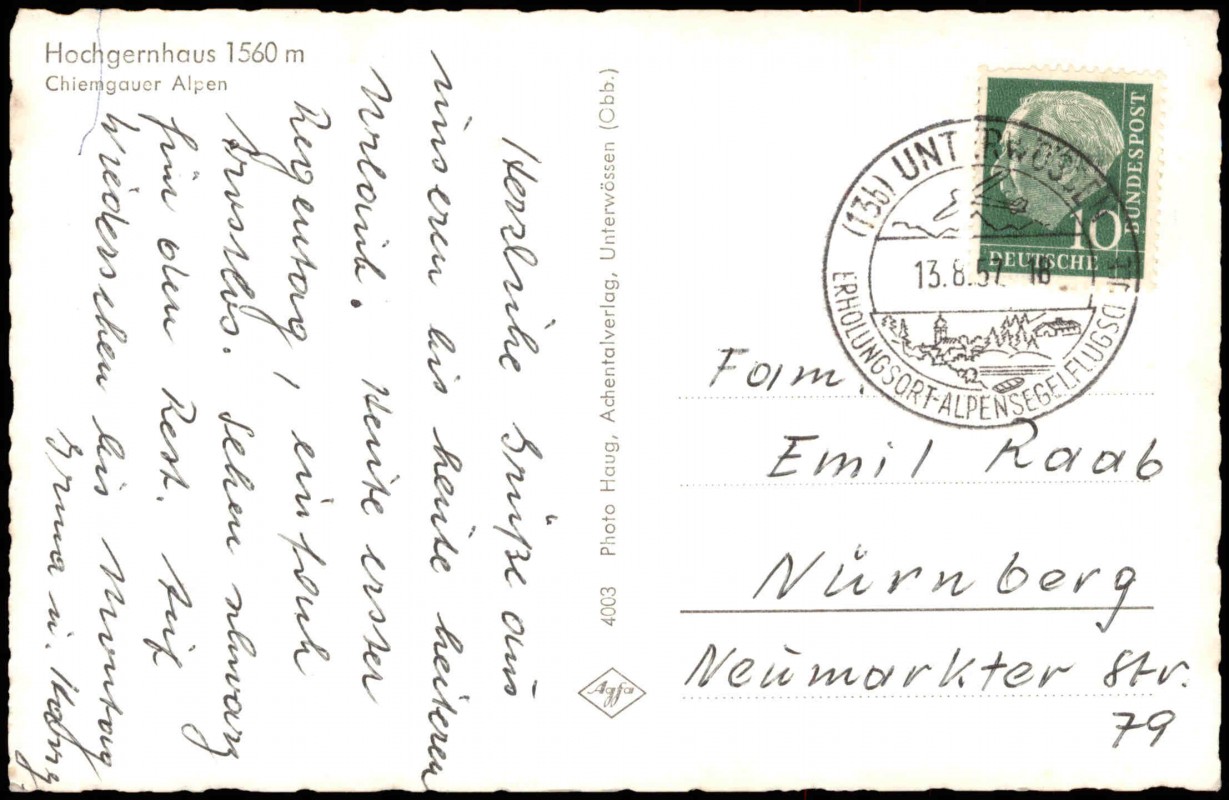 Hochgernhaus 1560 m
Chiemgauer Alpen
Herzliche Grüße aus
unserem bis heute heiteren
Urlaub. Heute erster
Regentag, einfach
trostlos. Sehen schwarz
für den Rest. Auf
Wiedersehen bis Montag
Irma u.
4003 Photo Haug, Achentalverlag, Unterwössen (Obb.)
Agfa
BUNDESPOST
10
DEUTSCHE
(13b) UNTERWÖSSEN
13.8.57 18
ERHOLUNGSORT-ALPENSEGELFLUGSCHULE
Fam.
Emil Raab
Nürnberg
Neumarkter Str.
79